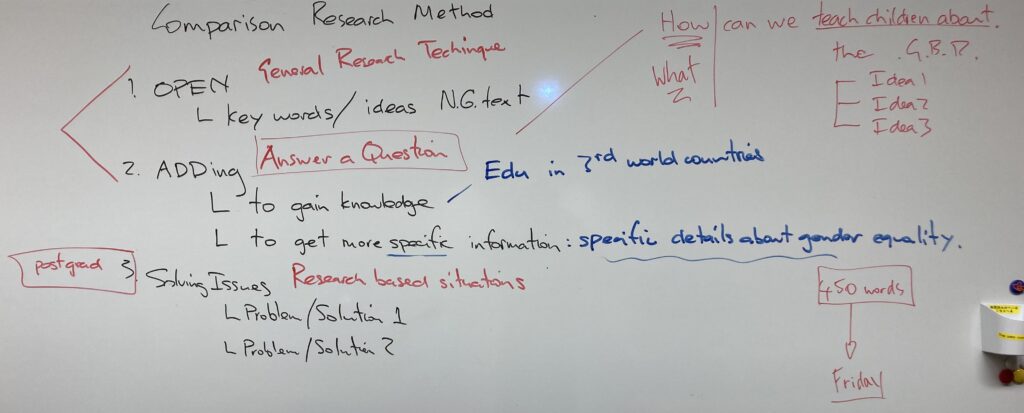 Comparison Research Method
1. OPEN General Research Techinque
L key words/ideas N.G. text
2. ADDing Answer a Question
L to gain knowledge
Edu in 3rd world countries
L to get more specific information: specific details about gender equality.
postgrad
3. Solving Issues Research based situations
L Problem/Solution 1
L Problem/Solution 2
How can we teach children about
What the G.B.R.
Idea 1
Idea 2
Idea 3
450 words
Friday